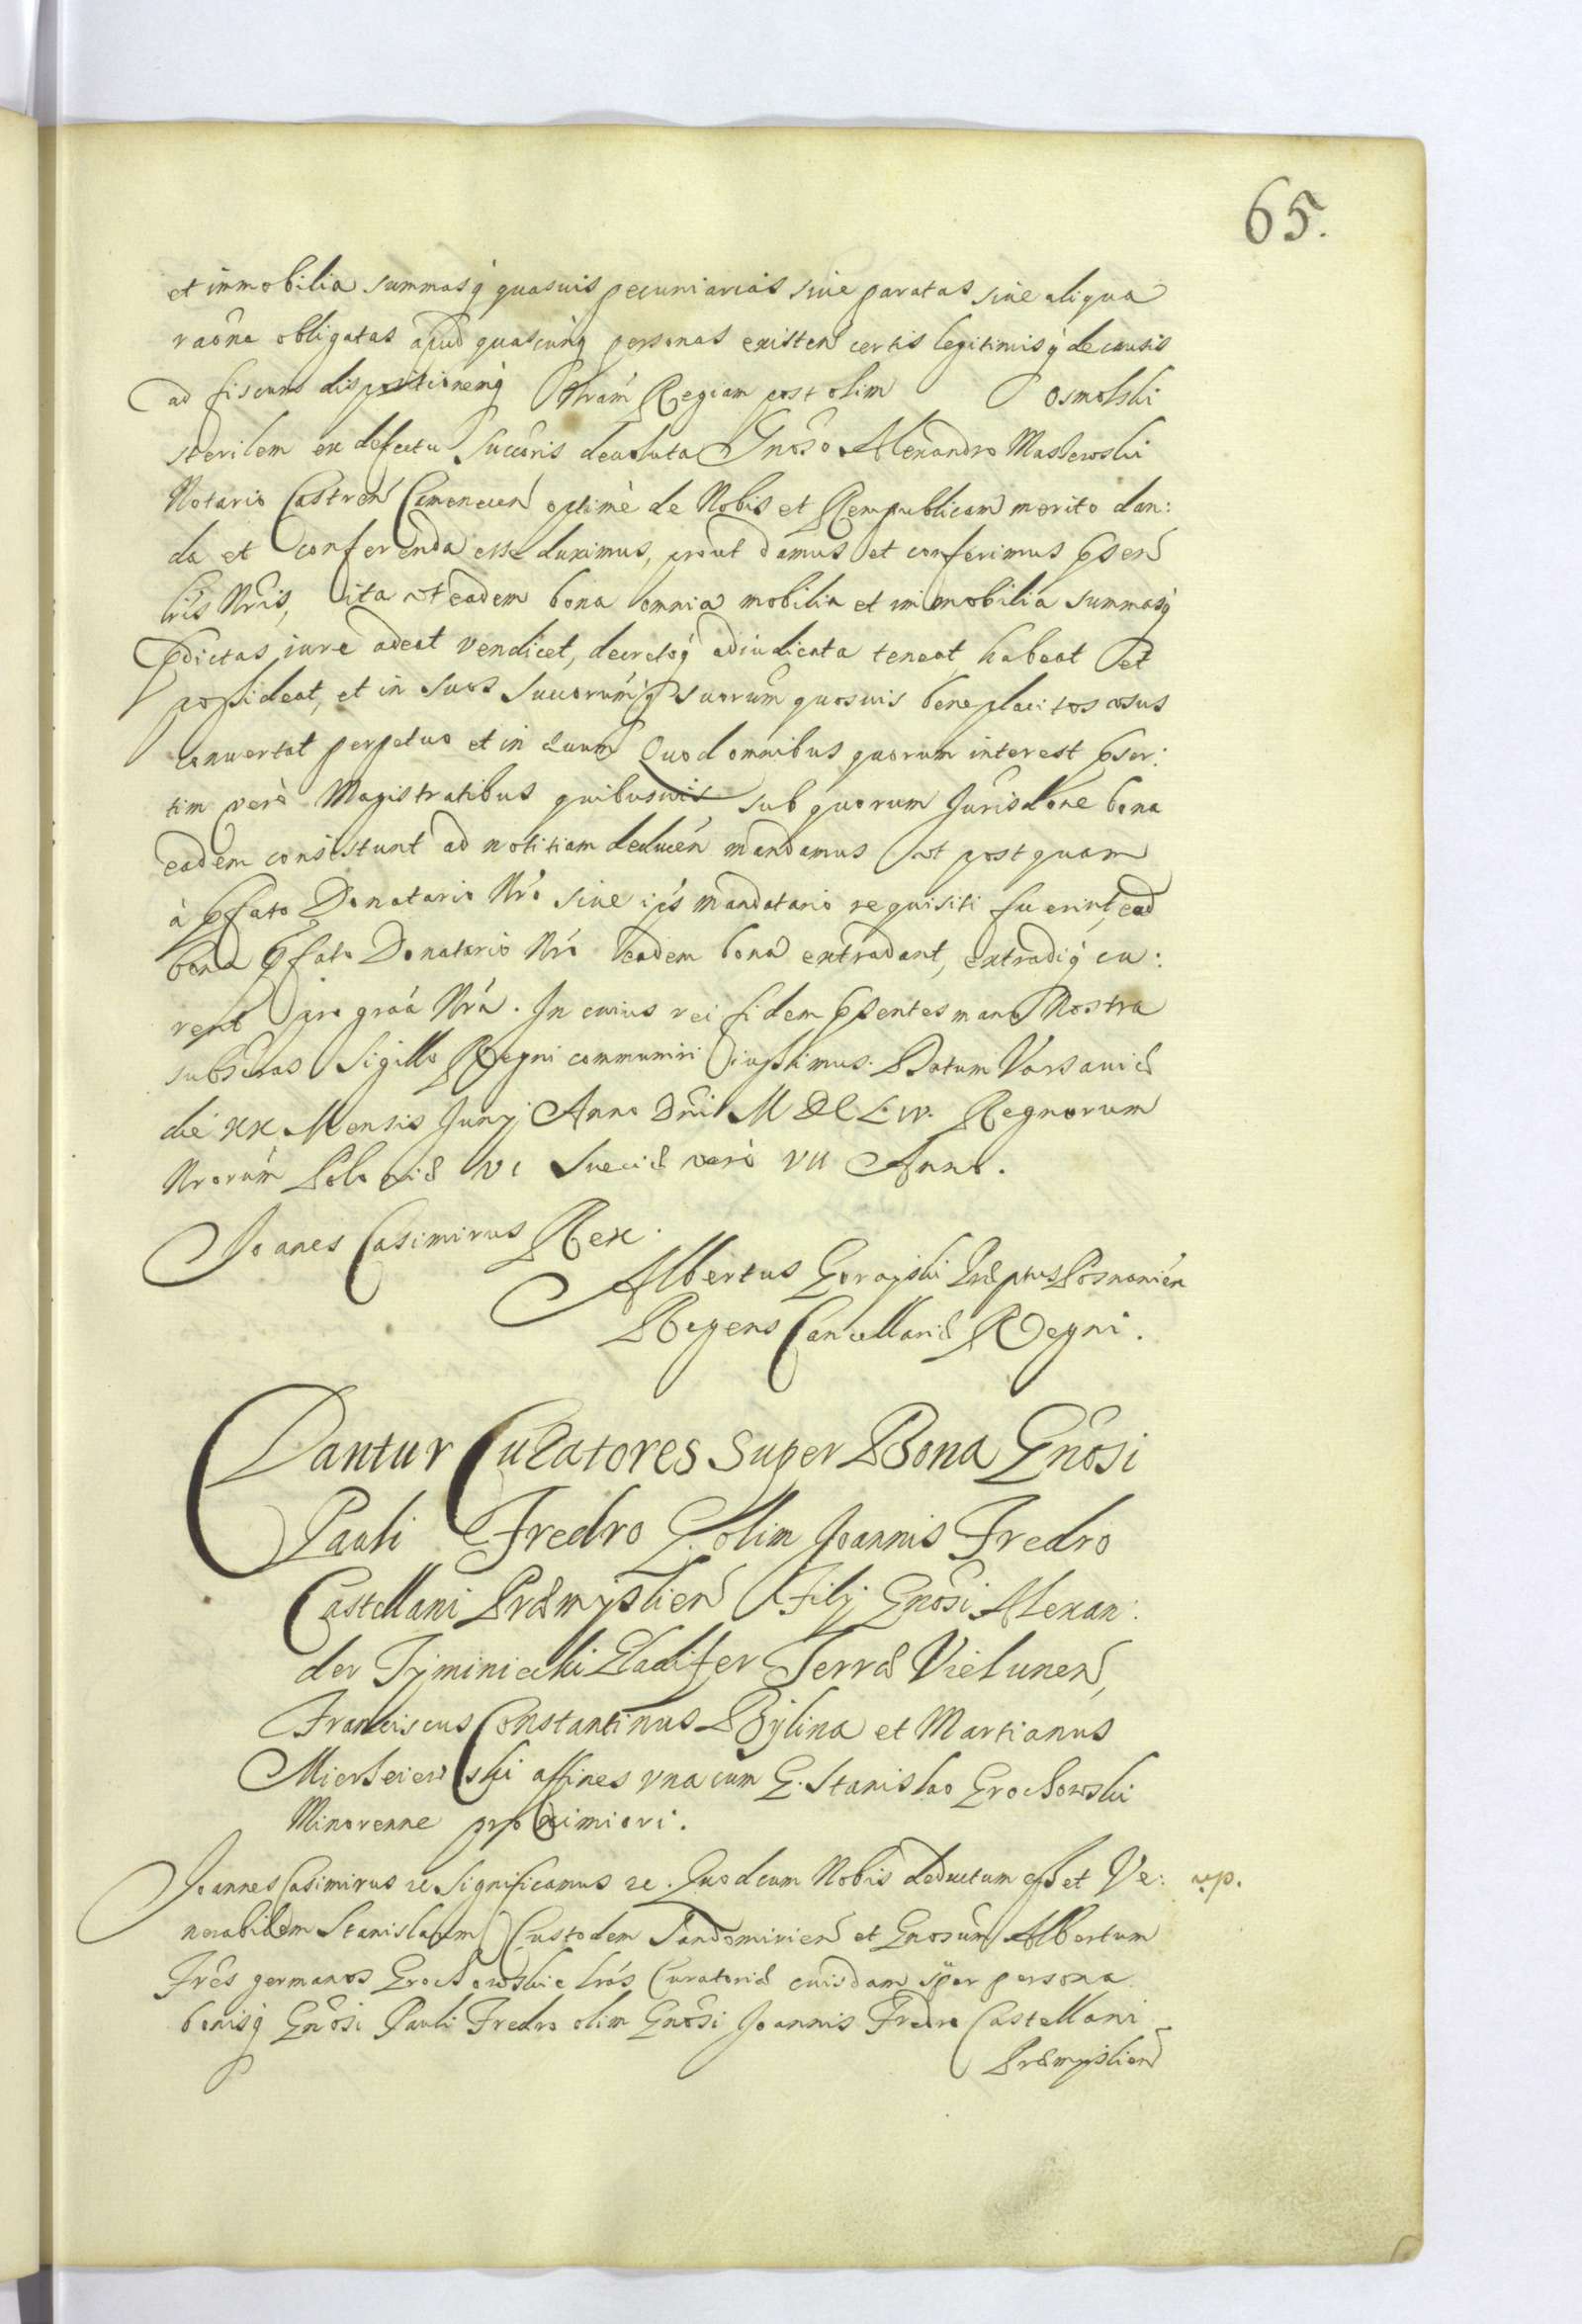 65.
et immobilia summasq́ quasuis pecuniarias siue paratas siue aliqua
raône obligatas apud quascunq́ personas existen certis legitimisq́ de causis
ad fiscum dispositionemq́ Nram Regiam post olim Osmolski
sterilem ex defectu Succoris deuoluta Gnoso Alexandro Maslewski
Notario Castren Camenecen optimè de Nobis et Rempublicam merito dan:
da et conferenda esse duximus, prout damus et conferimus psen
lris Nris, ita ut eadem bona omnia mobilia et immobilia summasq́
pdictas iure adeat vendicet, decretoq́ adiudicata teneat habeat et
possideat, et in suos Succorumq́ suorum quosuis beneplacitos usus
conuertat perpetuo et in æuum Quod omnibus quorum interest pser:
tim verò Magistratibus quibusuis sub quorum Jurisdone bona
eadem consistunt ad notitiam deducen mandamus ut postquam
à pfato Donatario Nro siue ips mandatario requisiti fuerint, ead
bona pfato Donatario Nro eadem bona extradant, extradiq́ cu:
rent pro graa Nra. In cuius rei fidem psentes manu Nostra
subscras Sigillo Regni communiri iussimus. Datum Varsauiæ
die XX Mensis Junij Anno Dni MDCLIV. Regnorum
Nrorum Poloniæ VI Sueciæ verò VII Anno.
Joanes Casimirus Rex.
Albertus Gorayski Præptus Posnanien
Regens Cancellariæ Regni.
Dantur Curatores super Bona Gnosi
Pauli Fredro G. olim Joannis Fredro
Castellani Præmyslien Filij Gnosi Alexan:
der Tyminiecki Gladifer Terræ Vielunen,
Franciscus Constantinus Bylina et Martianus
Mierseiewski affines vna cum G. Stanislao Grochowski
Minorenne proximiori.
Joannes Casimirus re Significamus re. Quod cum Nobis deductum esset Ve:
up.
nerabilem Stanislaum Custodem Sandomirien et Gnosum Albertum
Fres germanos Grochowskie lras Curatoriæ cuisdam sper persona
bonisq́ Gnosi Pauli Fredro olim Gnosi Joannis Fredro Castellani
Præmyslien